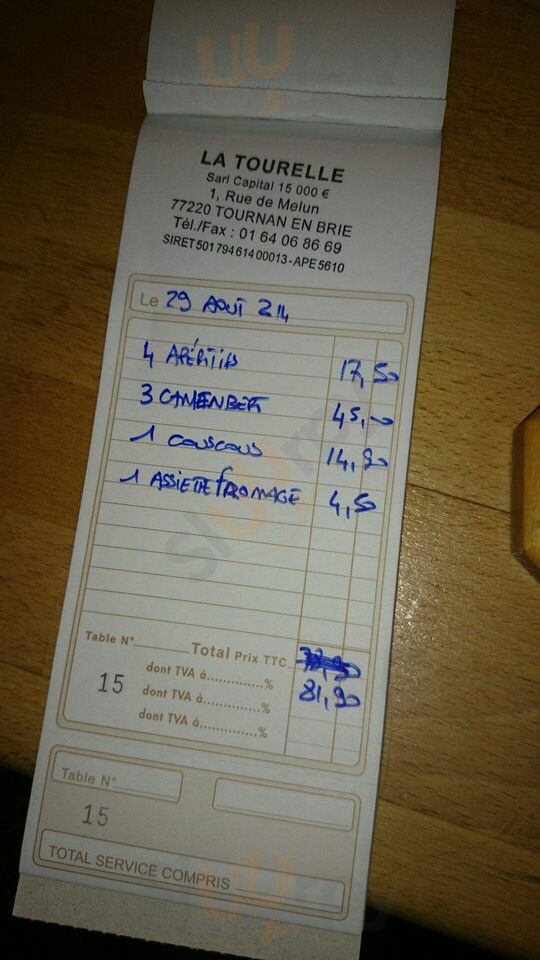 LA TOURELLE
Sarl Capital 15 000 €
1, Rue de Melun
77220 TOURNAN EN BRIE
Tél./Fax : 01 64 06 86 69
SIRET 501 794 614 00013 - APE 5610
Le 29 AOUT 214
4 APÉRITIFS 17,50
3 CAMENBERT 45,00
1 COUSCOUS 14,90
1 ASSIETTE FROMAGE 4,50
Table N° Total Prix TTC
81,90
dont TVA à..............%
15 dont TVA à..............%
dont TVA à..............%
Table N°
15
TOTAL SERVICE COMPRIS